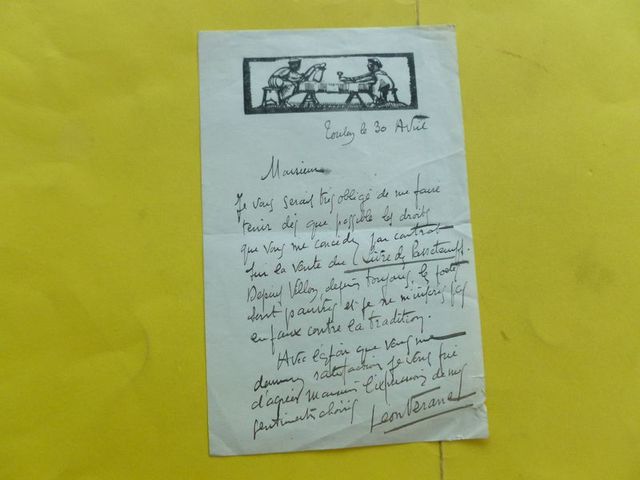 Toulon le 30 Avril
Monsieur
Je vous serais très obligé de me faire
tenir dès que possible les droits
que vous me concédez par contrat
sur la vente du Livre des Passetemps.
Depuis Villon, depuis toujours, les poètes
sont pauvres et je ne m'inscris pas
en faux contre la tradition.
Avec l'espoir que vous me
donnerez satisfaction je vous prie
d'agréer Monsieur l'expression de mes
sentiments choisis
Léon Vérane